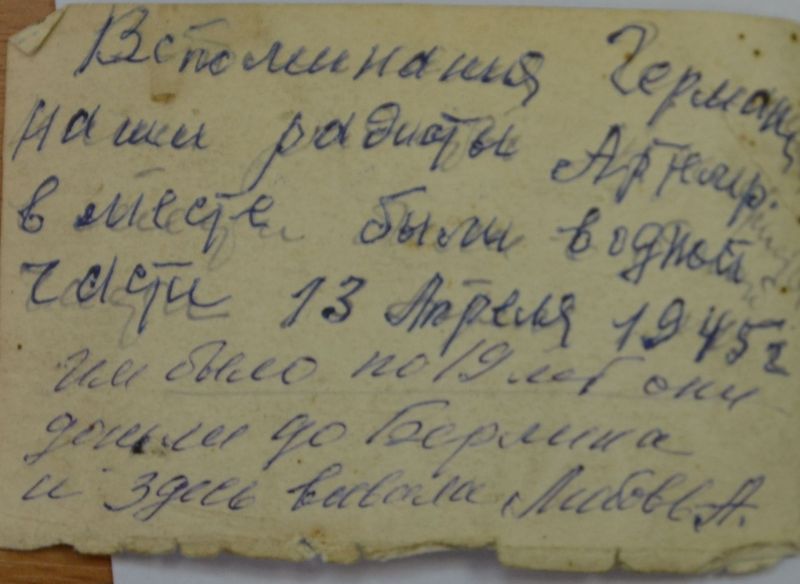 Вспоминания Германи
наши радисты Артилир.
вместе были водной
части 13 Апреля 1945г
им было по 19 лет они
дошли до Берлина
и здесь воевала Любовь А.